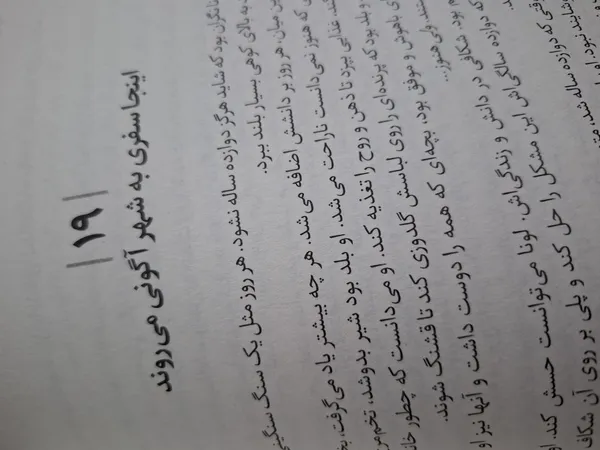 ۱۹
اینجا سفری به شهر آگونی می‌روند
نگران بود که شاید هرگز دوازده ساله نشود. هر روز مثل یک سنگ سنگین
به بالای کوهی بسیار بلند ببرد.
این میان، هر روز بر دانشش اضافه می‌شد. هر چه بیشتر یاد می‌گرفت،
که هنوز نمی‌دانست ناراحت می‌شد. او بلد بود شیر بدوشد، تخم‌مرغ
غذایی بپزد تا ذهن و روح را تغذیه کند. او می‌دانست که چطور
بلد بود که پرنده‌ای را روی لباسش گلدوزی کند تا قشنگ شوند.
باهوش و موفق بود، بچه‌ای که همه را دوست داشت و آنها نیز او
ولی هنوز...
بود. شکافی در دانش و زندگی‌اش. لونا می‌توانست حسش کند.
که دوازده سالگی‌اش این مشکل را حل کند و پلی بر روی آن شکاف
که دوازده ساله شد،